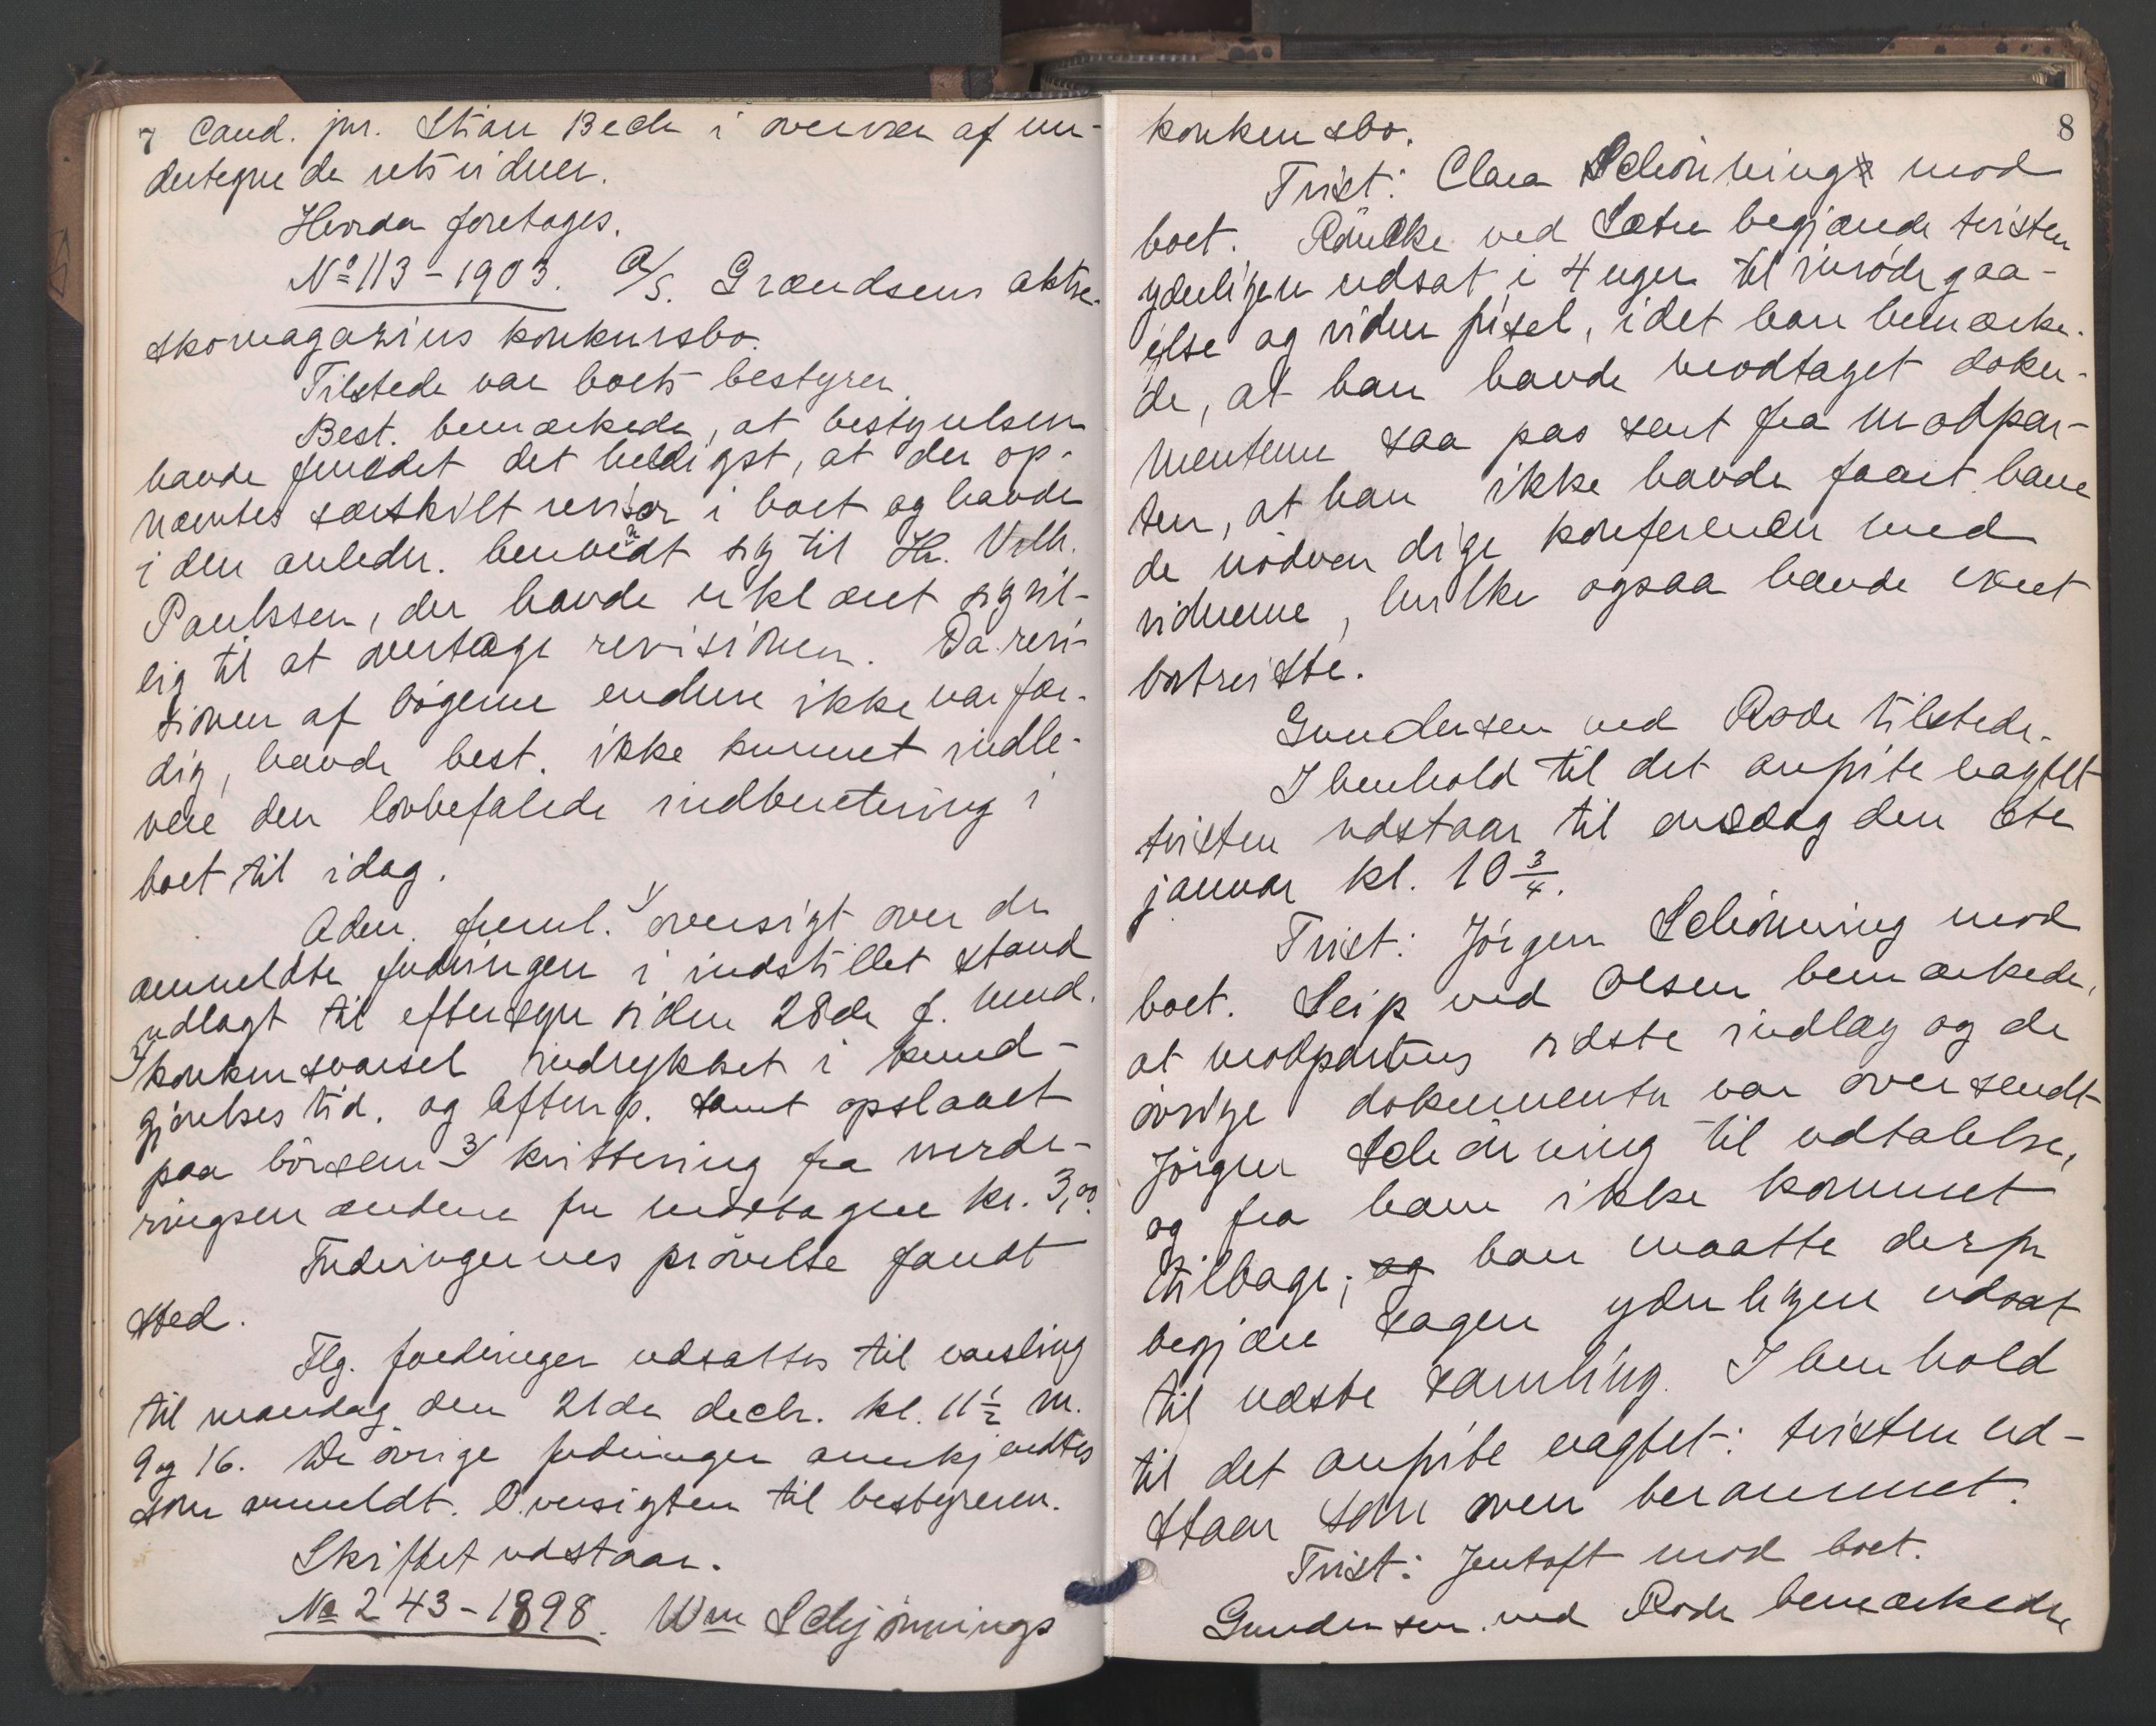 7 Cand. jur. Stian Bech i overvær af un-
dertegnede retsvidner.
Hvorda foretoges.
No 113 - 1903. A/S. Grændsens aktie-
skomagazins konkursbo.
Tilstede var boets bestyrer.
Best. bemærkede, at bestyrelsen
havde fundet det heldigst, at der op-
nævntes særskilt revisor i boet og havde
i den anledn. henvendt sig til Hr. Vilh.
Paulssen, der havde erklæret sig vil-
lig til at overtage revisionen. Da revi-
sionen af bøgerne endnu ikke var fær-
dig, havde best. ikke kunnet indle-
vere den lovbefalede indberetning i
boet til idag.
Adm. freml. 1/ oversigt over de
anmeldte fordringer i indstillet stand
udlagt til eftersyn siden 28de f. mnd.
2/ konkursvarsel indrykket i kund-
gjørelses tid. og Aftenp. samt opslaaet
paa børsen 3/ kvittering fra vurde-
ringsmændene for modtagne kr. 3,00.
Fordringernes prøvelse fandt
sted.
Flg. fordringer udsattes til varsling
til mandag den 21de decbr. kl. 11 1/2 m.
9 og 16. De øvrige fordringer anerkjendtes
som anmeldt. Oversigten til bestyreren.
Skiftet udstaar.
No 243 - 1898. Wm Schjønnings
8
konkursbo.
Tvist: Clara Schönning mod
boet. Röncke ved Sætre begjærede tvisten
yderligere udsat i 4 uger til imødegaa-
else og vidneførsel, idet han bemærke-
de, at han havde modtaget doku-
menterne saa pas sent fra modpar-
ten, at han ikke havde faaet have
de nødvendige konferencer med
vidnerne, hvilke ogsaa havde været
bortreiste.
Gundersen ved Rode tilstede.
I henhold til det anførte vagtet
tvisten udstaar til onsdag den 6te
januar kl. 10 3/4.
Tvist: Jørgen Schönning mod
boet. Seip ved Olsen bemærkede,
at modpartens sidste indlæg og de
øvrige dokumenter var oversendt
Jørgen Schönning til udtalelse,
og fra ham ikke kommet
tilbage; og han maatte derfor
begjære sagen yderligere udsat
til næste samling. I henhold
til det anførte vagtet: tvisten ud-
staar som oven berammet.
Tvist: Jentoft mod boet.
Gundersen ved Rode bemærkede